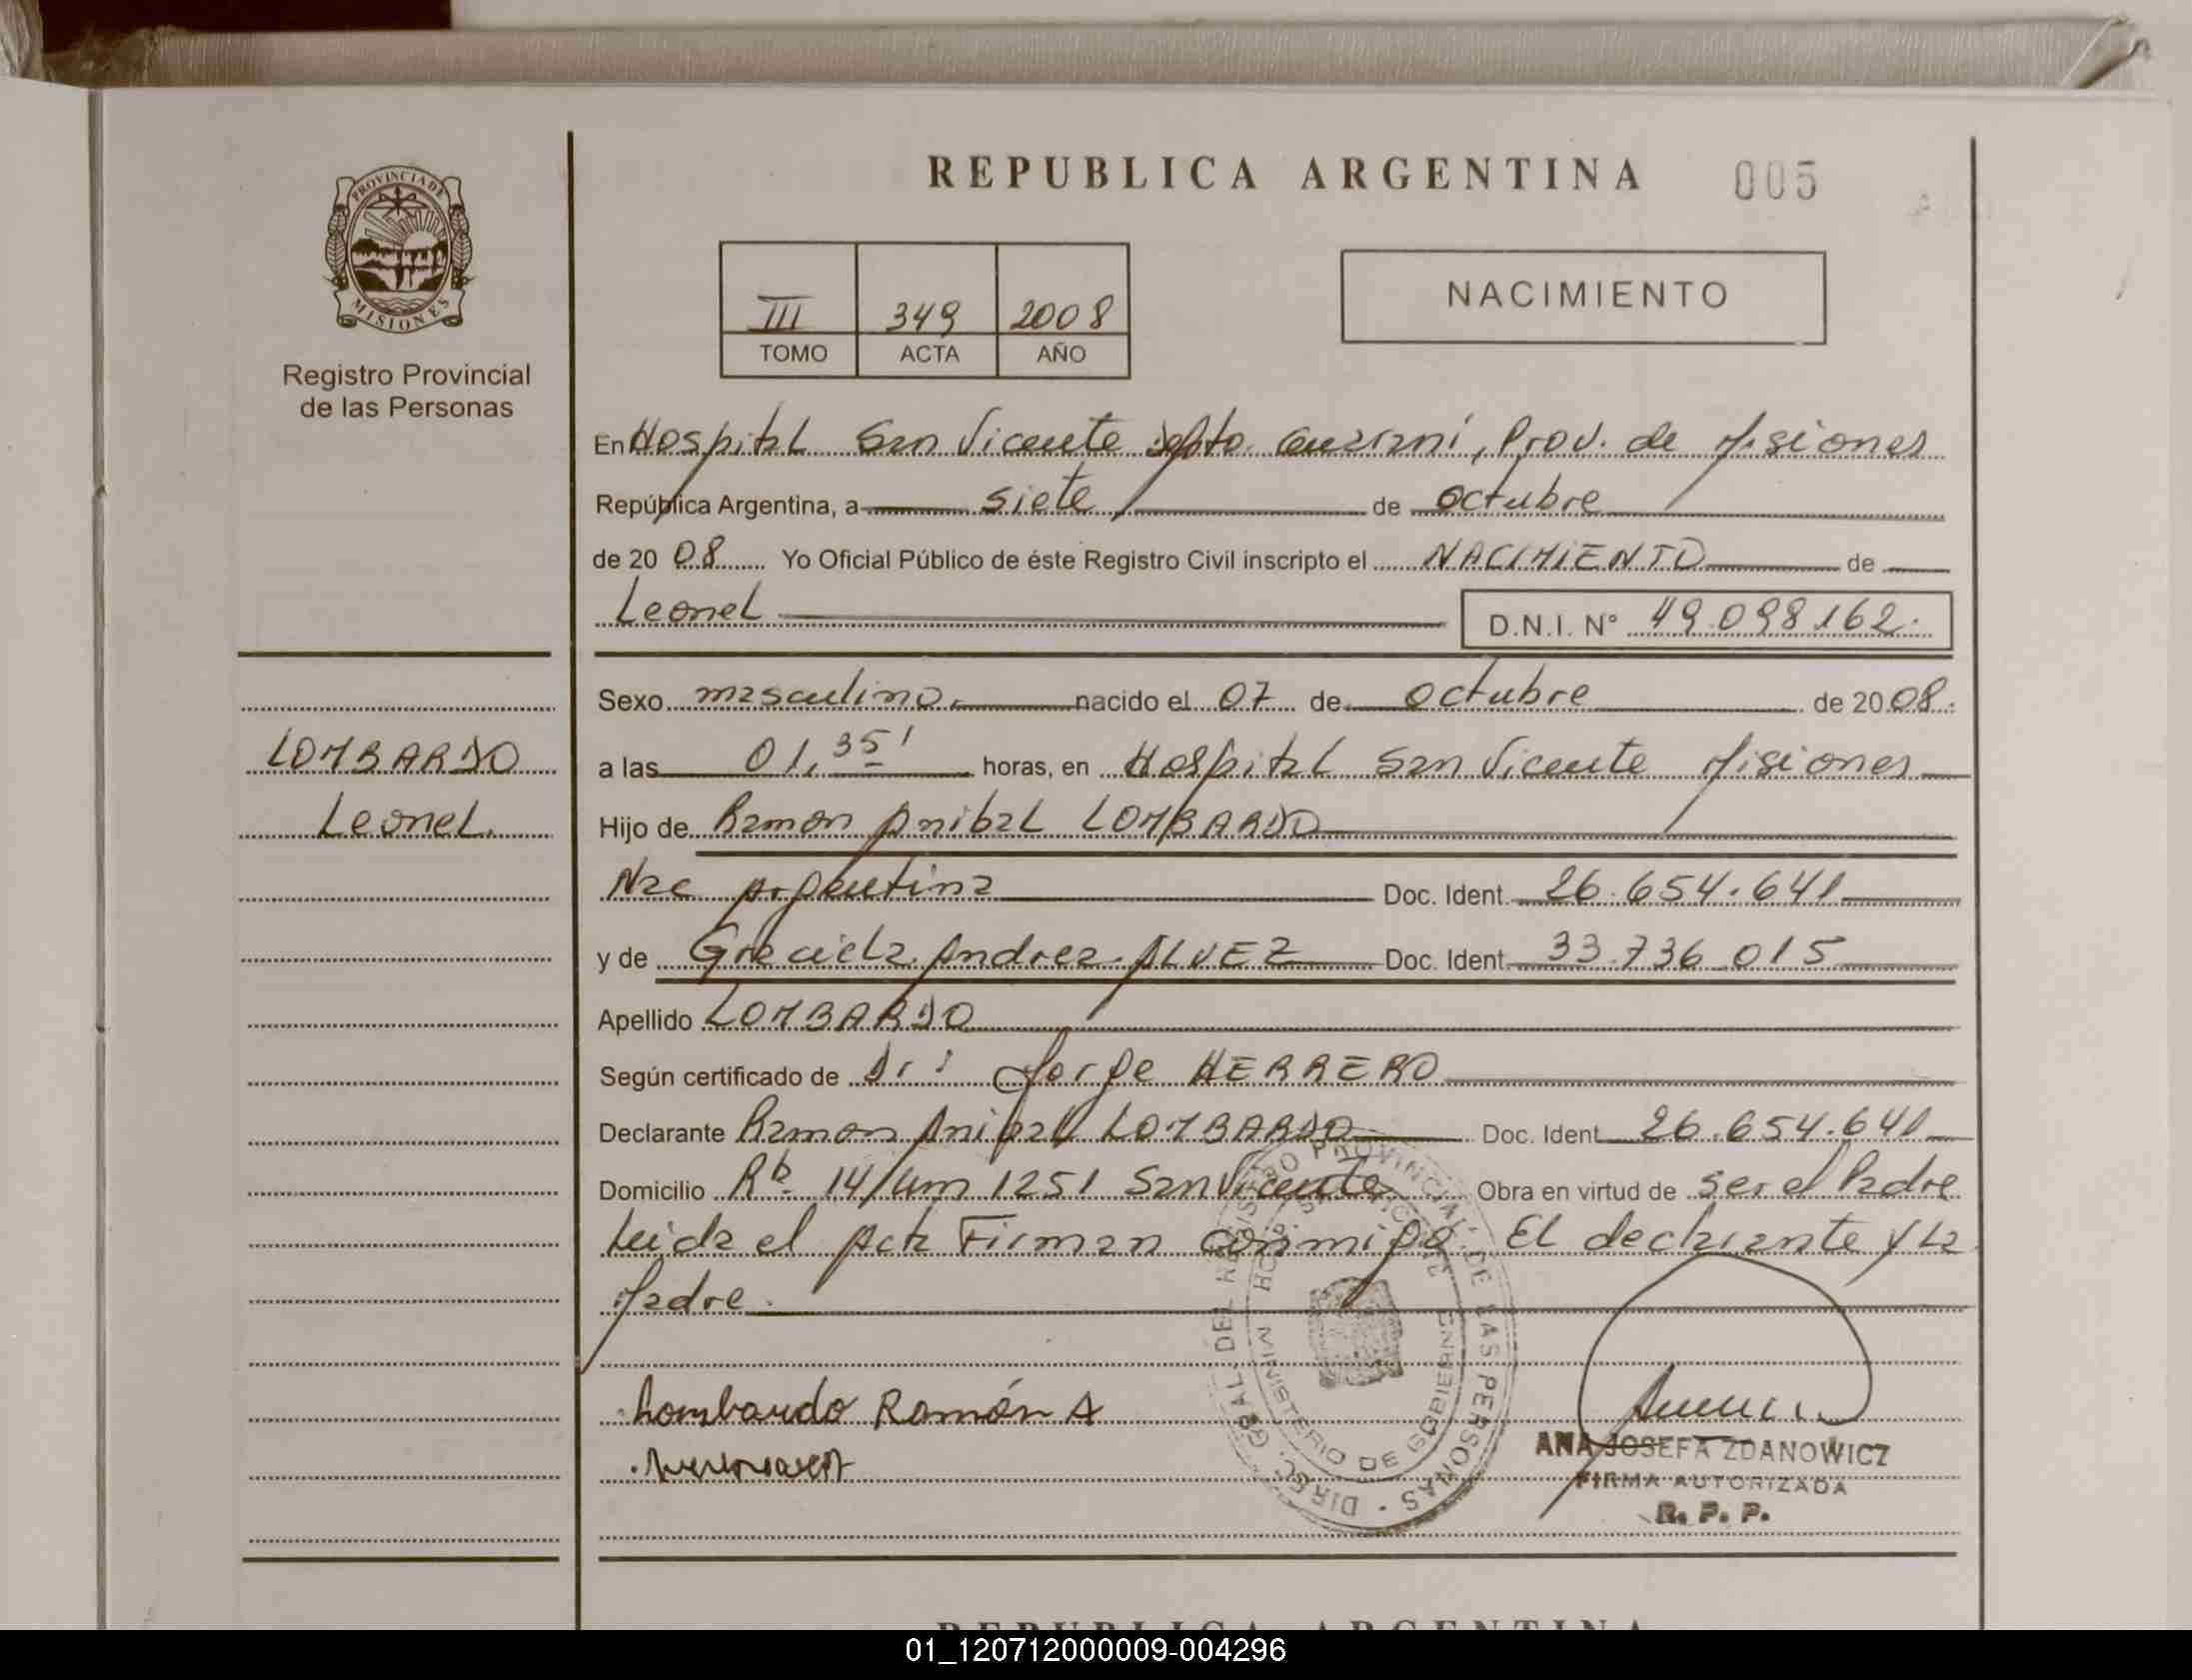 REPUBLICA ARGENTINA 005
PROVINCIA DE
MISIONES
Registro Provincial
de las Personas
III 349 2008
TOMO ACTA AÑO
NACIMIENTO
En Hospital San Vicente Dpto. Guaraní, Prov. de Misiones
República Argentina, a siete de octubre
de 20 08 Yo Oficial Público de éste Registro Civil inscripto el NACIMIENTO de
Leonel D.N.I. N° 49.098.162.
Sexo masculino. nacido el 07 de octubre de 20 08.
LOMBARDO
a las 01,35' horas, en Hospital San Vicente Misiones
Leonel.
Hijo de Ramon Anibal LOMBARDO
Nac Argentina Doc. Ident. 26.654.641
y de Graciela Andrea ALVEZ Doc. Ident. 33.736.015
Apellido LOMBARDO
Según certificado de Dr: Jorge HERRERO
Declarante Ramon Anibal LOMBARDO Doc. Ident. 26.654.641
Domicilio Rta. 14/Km 1251 San Vicente Obra en virtud de ser el Padre
Leida el Acta Firman conmigo El declarante y La
Madre.
DIREC. GRAL. DEL REGISTRO PROVINCIAL DE LAS PERSONAS
HOSP. SAN VICENTE
MINISTERIO DE GOBIERNO
Lombardo Ramón A
ANA JOSEFA ZDANOWICZ
FIRMA AUTORIZADA
R. P. P.
REPUBLICA ARGENTINA
01_120712000009-004296